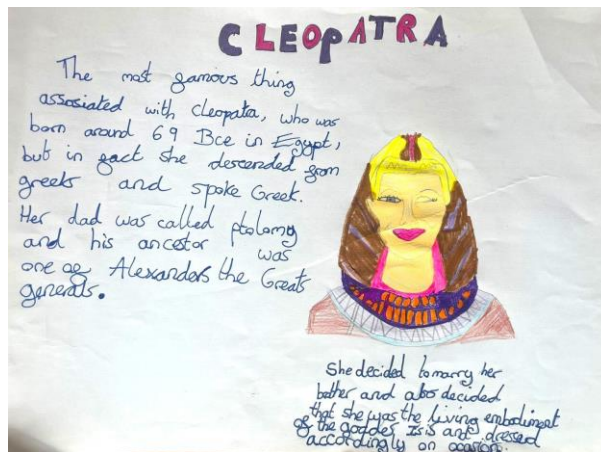 CLEOPATRA
The most famous thing
assosiated with cleopatra, who was
born around 69 Bce in Egypt,
but in fact she descended from
greeks and spoke Greek.
Her dad was called ptolomy
and his ancestor was
one of Alexanders the Greats
generals.
She decided to marry her
bother and also decided
that she was the living embodiment
of the goddes Isis and dressed
accordingly on ocasions.